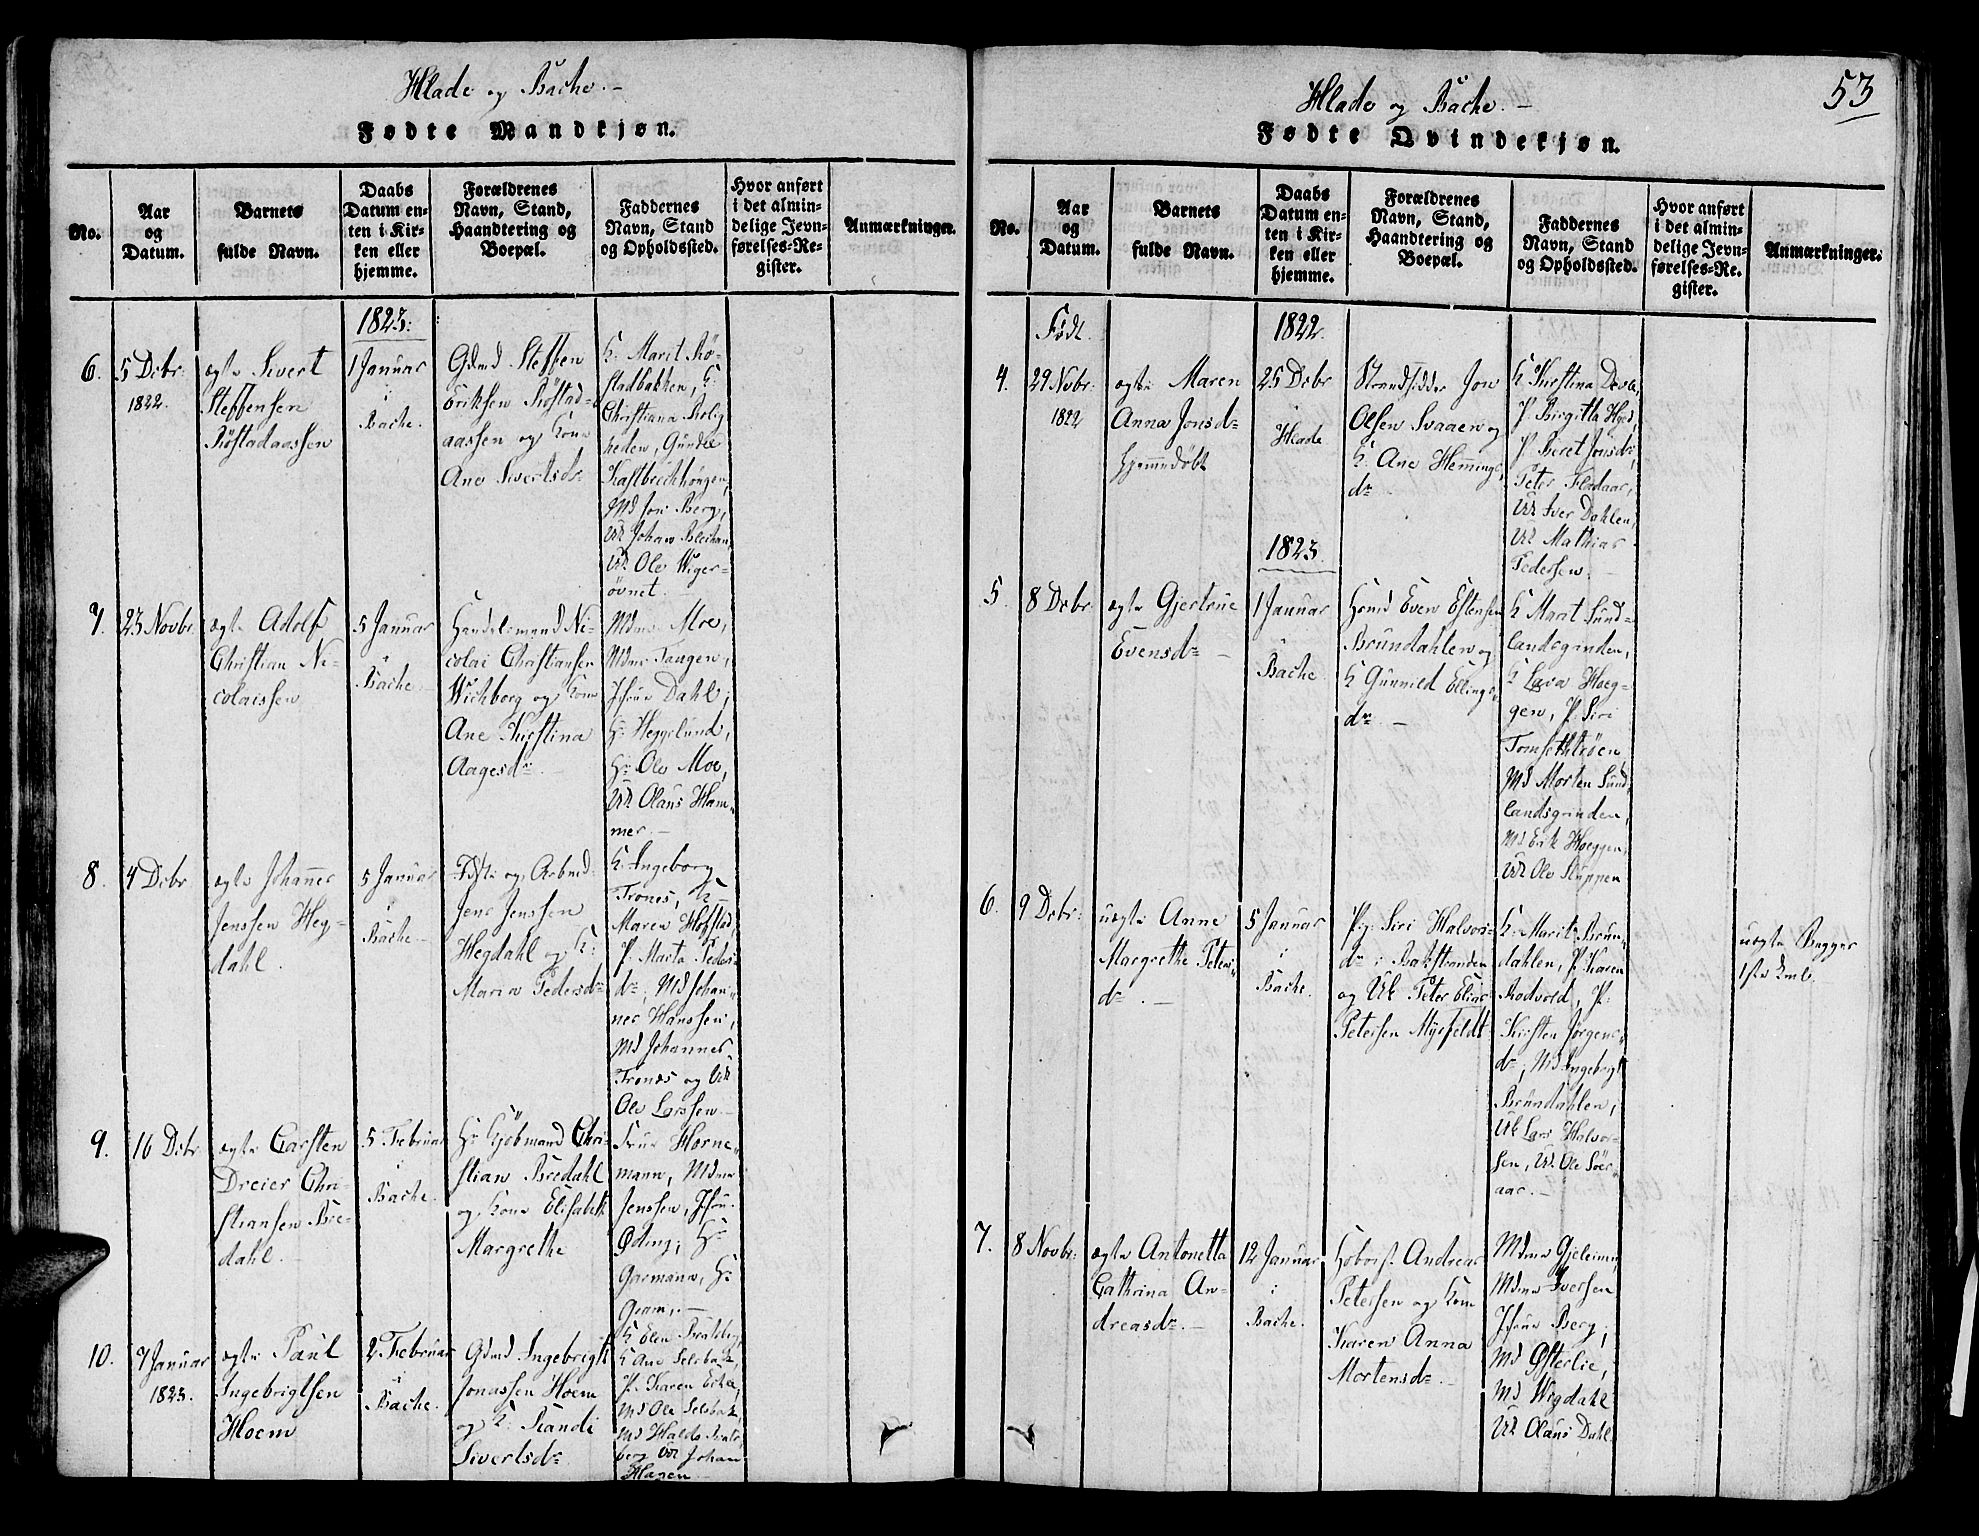 Hlade og Bache.
Fødte Mandkjøn.
No.
Aar
og
Datum.
Barnets
fulde Navn.
Daabs
Datum en-
ten i Kir-
ken eller
hjemme.
Forældrenes
Navn, Stand,
Haandtering og
Boepæl.
Faddernes
Navn, Stand
og Opholdssted.
Hvor anført
i det almin-
delige Jevn-
førelses-Re-
gister.
Anmærkninger.
1823.
6.
5 Dcbr:
1822.
ægte Sivert
Steffensen
Röstadaassen
1 Januar
i
Bache.
Gdmd Steffen
Eriksen Röstad-
aassen og Kone
Ane Sivertsdr
K: Marit Rö-
stadbakken, K:
Christiana Rolig
heden, Gunder
Md Jon Berg,
Uk Johan
Uk Ole Wiger-
øvnet.
7.
23 Novbr.
ægte Adolf
Christian Ni-
colaissen
5 Januar
i
Bache.
Handelsmand Ni-
colai Christiansen
Wichborg og Kone
Ane Kirstina
Aagesdr.
Mdme Moe,
Mdme Tangen,
Jfru Dahl,
Hr Heggelund,
Hr Ole Moe,
Uk Olaus Ham-
mer.
8.
4 Dcbr
ægte Johannes
Jenssen Heg-
dahl.
5 Januar
i
Bache.
og Arbmd:
Jens Jenssen
Hegdahl og K:
Maria Pedersdr
K: Ingeborg
Trones, K
Maren Hofstad,
P. Marta Peders-
dr, Md Johan-
nes Hanssen,
Md Johannes
Trones og Uk
Ole Larssen.
9.
16 Dcbr
ægte Carsten
Dreier Chri-
stiansen Bre-
dahl.
5 Februar
i
Bache.
Hr Kjöbmand Chri-
stian Bredahl
og Kone Elisabeth
Margrethe
Frue Horne-
mann, Mdme
Jenssen, Jfru
Øding, Hr
Garmann, Hr
Gram.
10.
7 Januar
1823.
ægte Paul
Ingebrigtsen
Hoem
2 Februar
i
Bache.
Gdmd Ingebrigt
Jonassen Hoem
og K: Randi
Sivertsdr
K Elen
K Ane Selsbak,
P. Karen
Md Ole Selsbak,
Md Haldo
berg Uk Johan
Hagen
53
Hlade og Bache.
Fødte Qvindekjøn.
No.
Aar
og
Datum.
Barnets
fulde Navn.
Daabs
Datum en-
ten i Kir-
ken eller
hjemme.
Forældrenes
Navn, Stand,
Haandtering og
Boepæl.
Faddernes
Navn, Stand
og Opholdssted.
Hvor anført
i det almin-
delige Jevn-
førelses-Re-
gister.
Anmærkninger.
Født
1822.
4.
29 Novbr:
1822
ægte Maren
Anna Jonsdr
hjemmedøbt
25 Dcbr
i
Hlade
Strandsidder Jon
Olsen Svaaen og
K: Ane Hemmings-
dr
K Kirstina Devle,
P. Birgitta
P. Beret Jonsdr,
Peter Fladaas,
Uk Iver Dahlen,
Uk Mathias
Pedersen.
1823.
5.
8 Dcbr:
ægte Gjertrue
Evensdr
1 Januar
i
Bache
Huusmd Even Estensen
Brundahlen og
K Gunnild Ellings-
dr
K Marit Sund-
landsgrinden,
K Lava Hoeg-
gen, P. Siri
Tomsethröen
Md Morten Sund-
landsgrinden,
Md Erik Hoeggen,
Uk Ole Sluppen
6.
9 Dcbr:
uægte Anne
Margrethe Peters-
dr.
5 Januar
i
Bache.
Pig: Siri Halvors-
dr i Bakstranden
og Uk Peter Elias
Petersen Myrfeldt
K: Marit Brun-
dahlen, P. Karen
Rodvold, P.
Kirsten Jörgens-
dr, Md Ingebrigt
Brundahlen,
Uk Lars Halvor-
sen, Uk Ole
aas.
uægte Begges
1ste
7.
8 Novbr:
ægte Antonetta
Cathrina An-
dreasdr.
12 Januar
i
Bache.
Hoboist Andreas
Petersen og Kone
Karen Anna
Mortensdr.
Mdme
Mdme Iversen
Jfrue Berg,
Md Østerlie,
Md Wigdahl
Uk Olaus Dahl